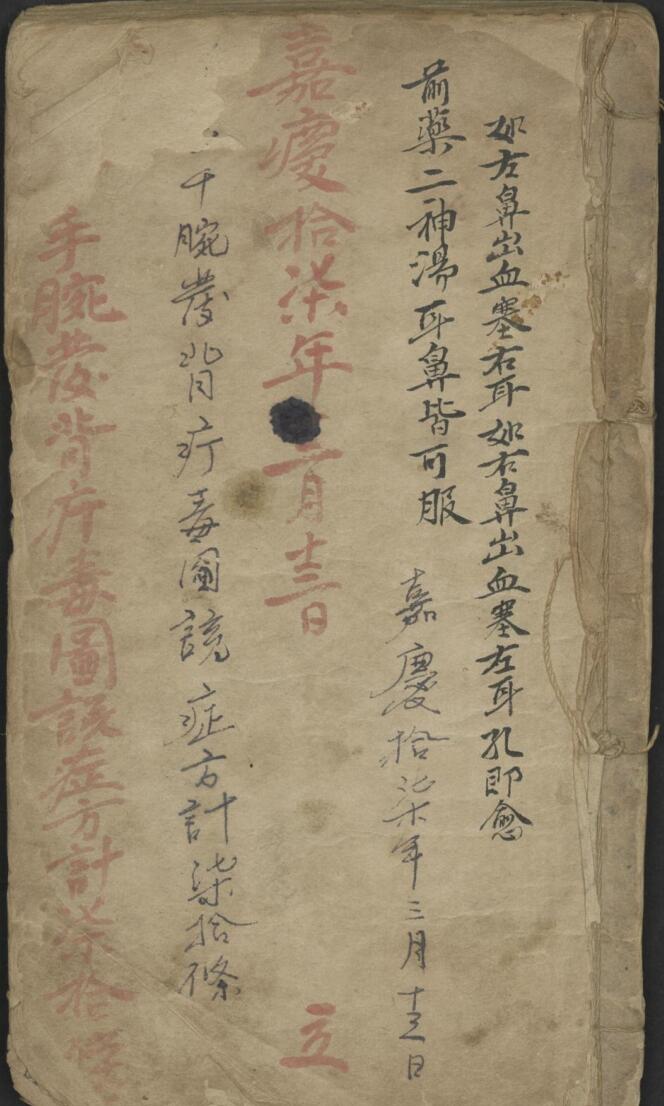 如左鼻出血塞右耳如右鼻出血塞左耳孔即愈
前藥二神湯耳鼻皆可服
嘉慶拾柒年三月十三日
嘉慶拾柒年三月十三日
立
手腕發背疔毒圖說症方計柒拾條
手腕發背疔毒圖說症方計柒拾條